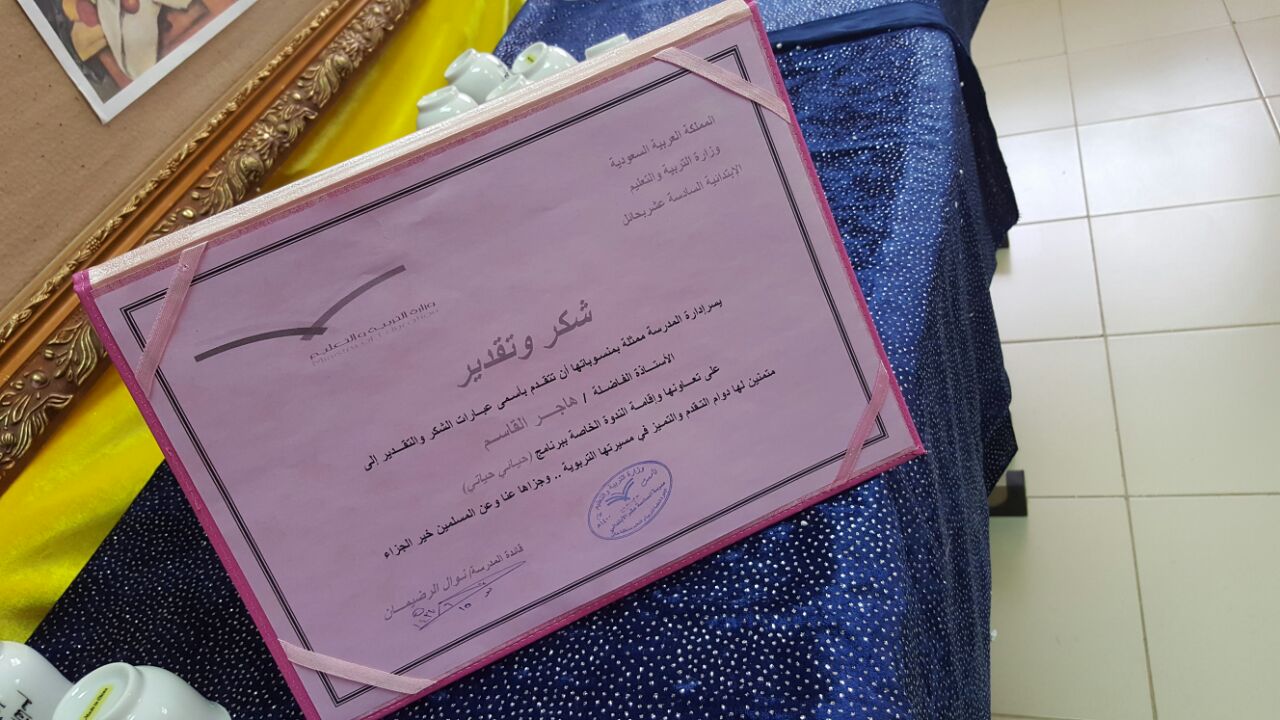 المملكة العربية السعودية
وزارة التربية والتعليم
الابتدائية السادسة عشر بحائل
وزارة التربية والتعليم
Ministry of Education
شكر وتقدير
يسر إدارة المدرسة ممثلة بمنسوباتها أن تتقدم بأسمى عبارات الشكر والتقدير إلى
الأستاذة الفاضلة / هاجر القاسم
على تعاونها وإقامة الندوة الخاصة ببرنامج (حيائي حياتي)
متمنين لها دوام التقدم والتميز في مسيرتها التربوية .. وجزاها عنا وعن المسلمين خير الجزاء
قائدة المدرسة/ نوال الرضيمان